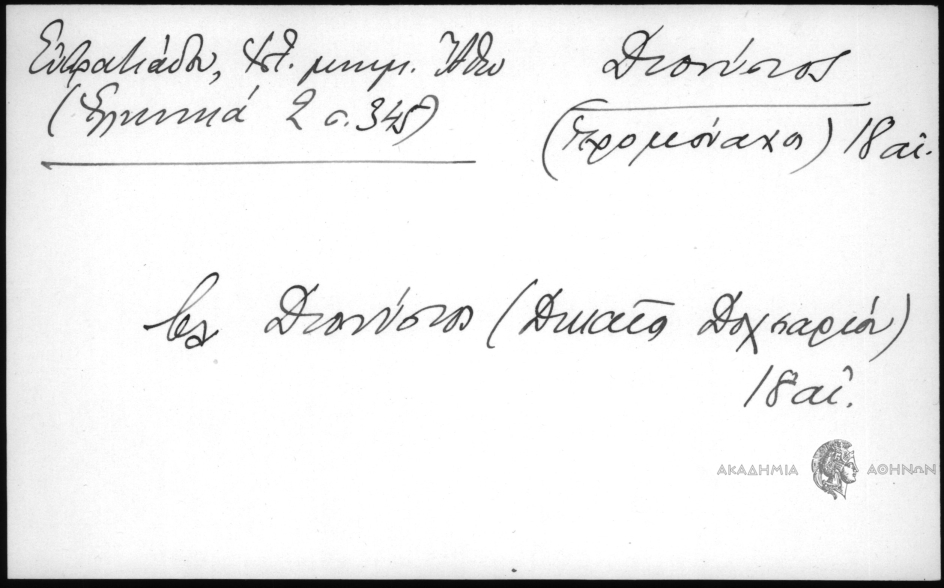 Εὐστρατιάδου, Ἱστ. μνημ. Ἄθω
(Ἑλληνικά 2 σ. 345)
Διονύσιος
(Ἱερομόναχος) 18 αἰ.
βλ Διονύσιος (Δικαῖος Δοχειαρίου)
18 αἰ.
ΑΚΑΔΗΜΙΑ ΑΘΗΝΩΝ